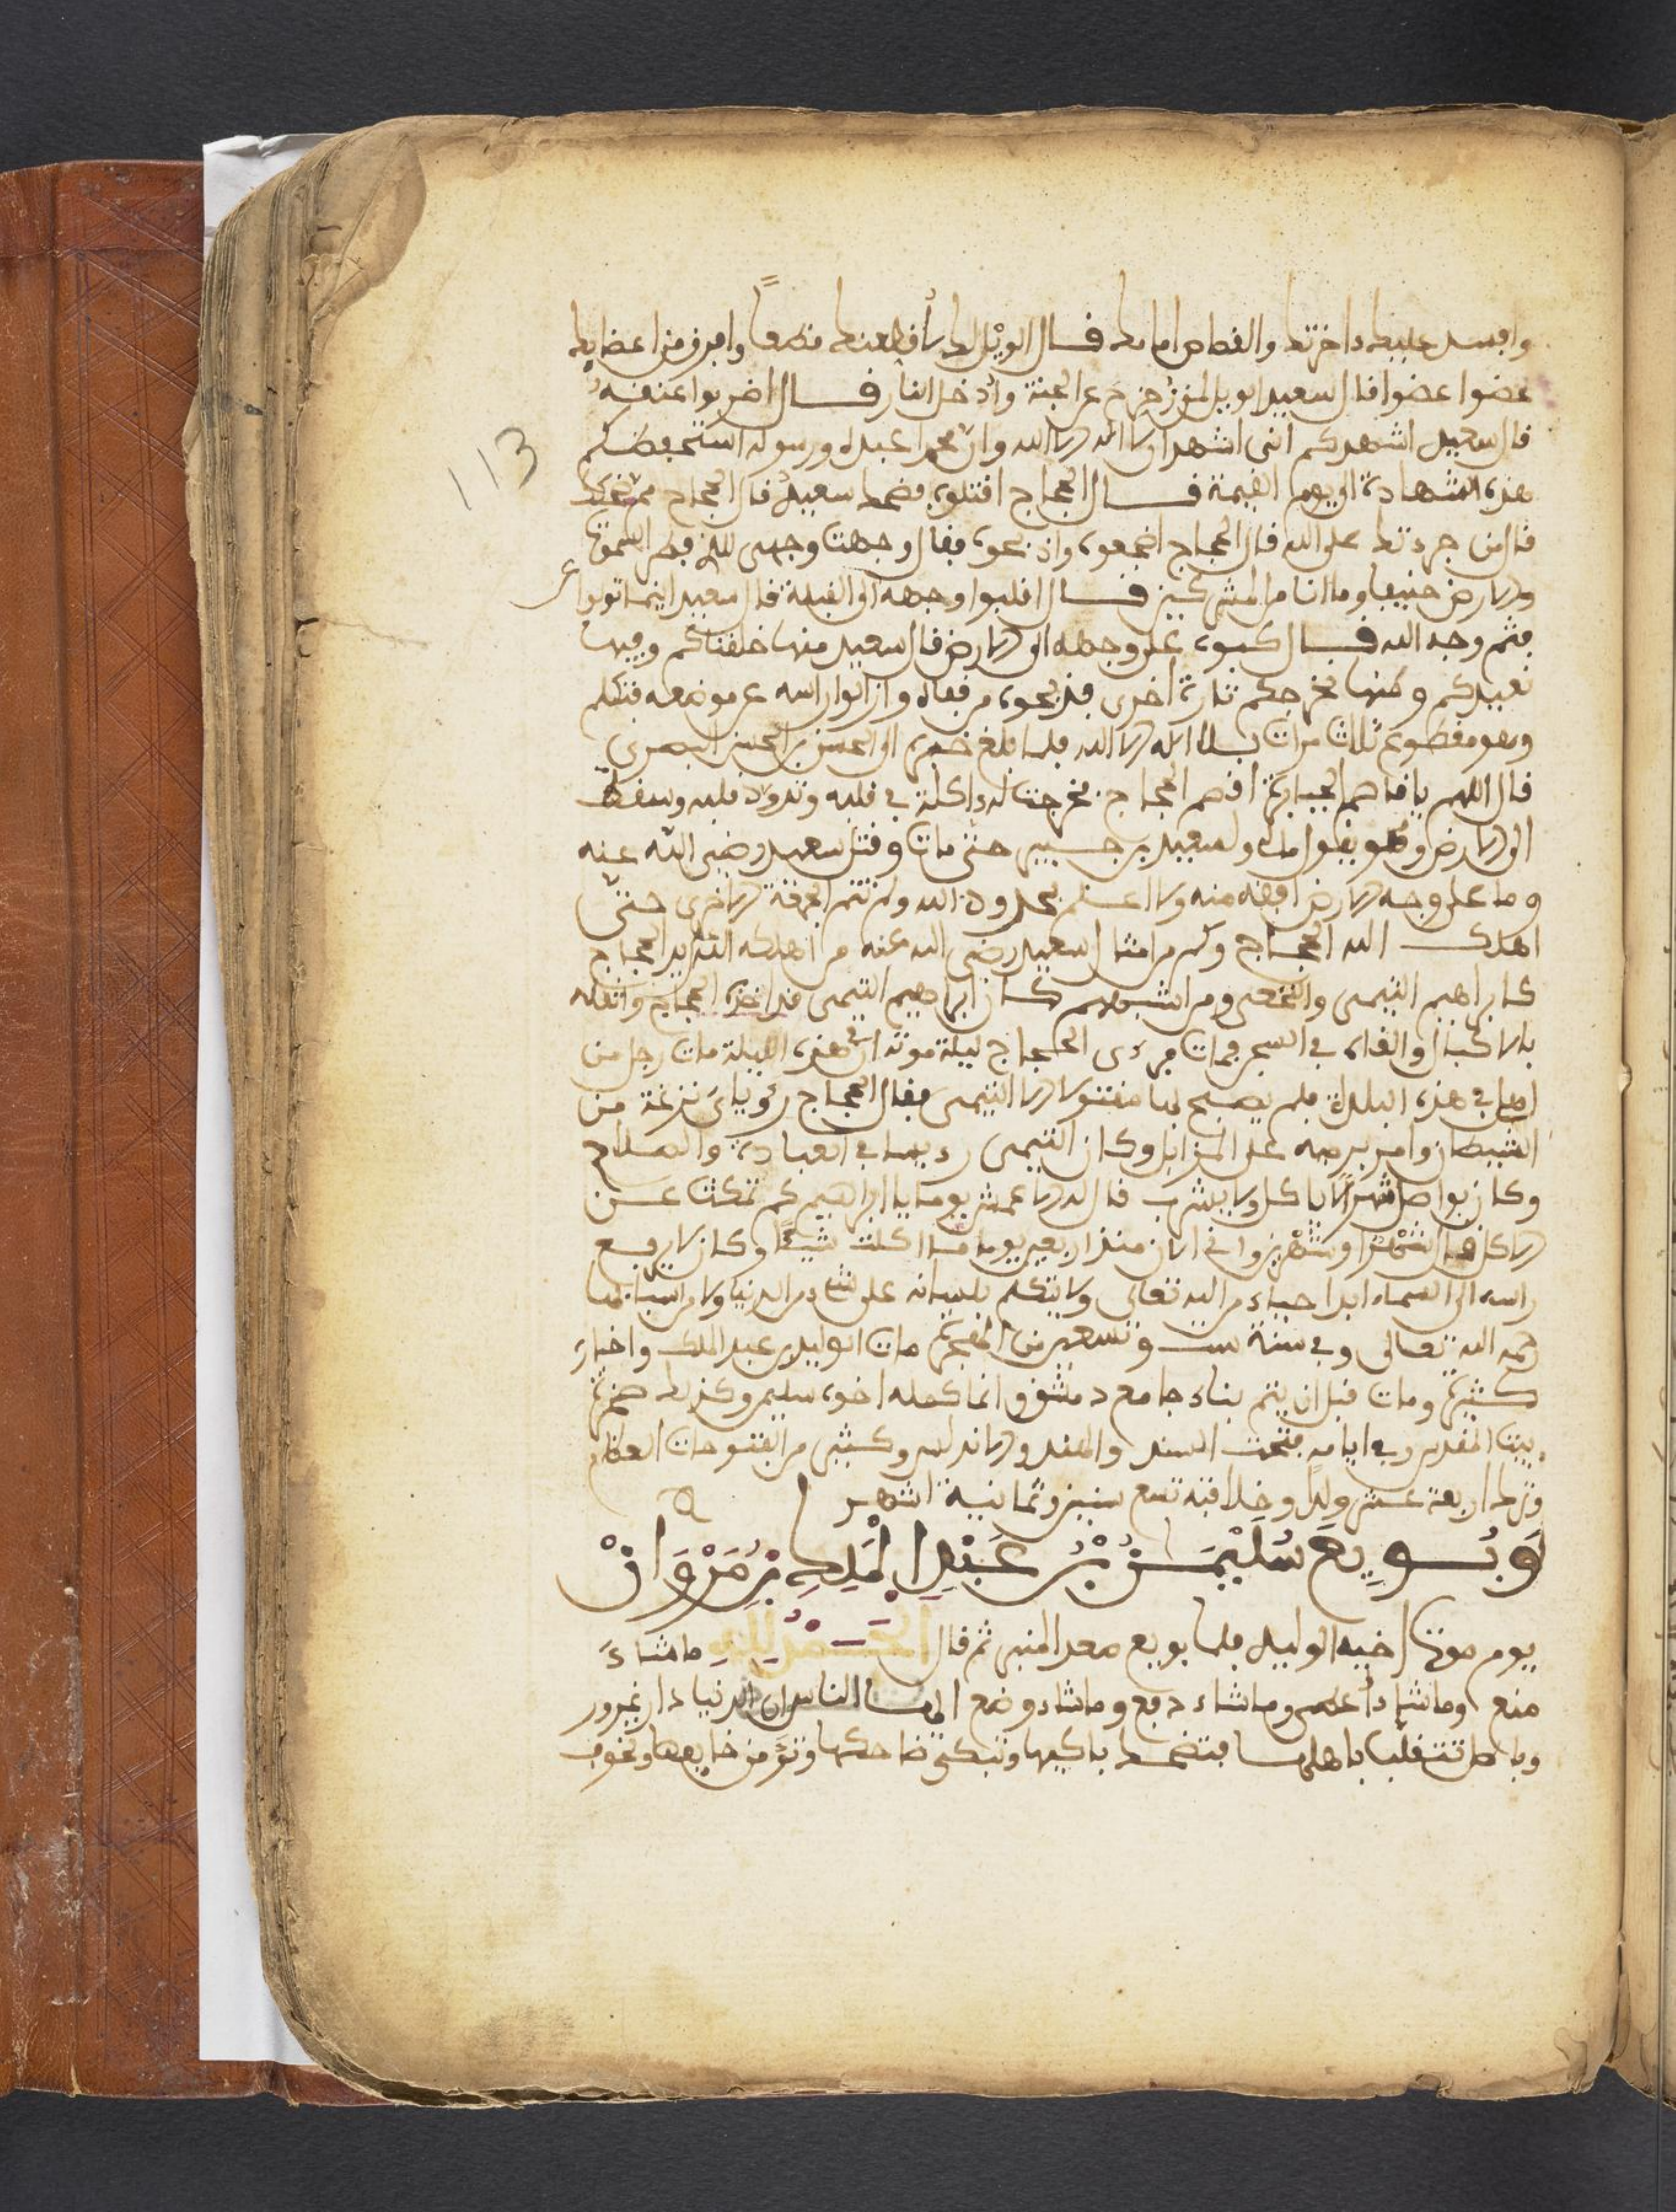 وافسد عليك ءاخرتك والقصاص امامك فــال الويل لك لأقطعنك قطعاً ولافرقن اعضايك
عضوا عضوا قال سعيد الويل لمن زحزح عن الجنة وأدخل النار قــال اضربوا عنقه
قال سعيد اشهدكم انى اشهد ان لا اله الا الله وان محمدا عبده ورسوله استحفظكم
هذه الشهادة الى يوم القيمة قــال الحجاج اقتلوه فضحك سعيد قال الحجاج مم تضحك
قال من جرءتك على الله قال الحجاج اضجعوه واذبحوه فقال وجهت وجهى للذى فطر السموت
والارض حنيفا وما انا من المشركين قــال اقلبوا وجهه الى القبلة قال سعيد اينما تولوا
فثم وجه الله قــال كبوه على وجهه الى الارض قال سعيد منها خلقناكم وفيها
نعيدكم ومنها نخرجكم تارة اخرى فذبحوه من قفاه وازالوا راسه عن موضعه فتكلم
وهو مقطوع ثلاث مرات بلا اله الا الله فلما بلغ خبره الى الحسن بن الحسن البصرى
قال اللهم يا قاصم الجبابرة اقصم الحجاج فخرجت له ءاكلة فى قلبه وتدود قلبه وسقط
الى الارض وهو يقول مالى ولسعيد بن جــبير حتى مات وقتل سعيد رضى الله عنه
وما على وجه الارض افقه منه ولا اعــلم بحدود الله ولم تتم الجمعة الاخرى حتى
اهلك الله الحجــاج وكم من امثال سعيد رضى الله عنه من اهلكه الله بيد الحجاج
كابراهيم التيمى والنخعى ومن اشبههم كــان ابراهيم التيمى قد اخذه الحجاج واثقله
بالاكبال والقاه فى السجن فمات فرءى الحجاج ليلة موته ان فى هذه الليلة مات رجل من
اهل فى هذه البلدة فلم يصبح بها مقتولا الا التيمى فقال الحجاج رؤياى نزغة من
الشيطان وامر برميه على المزابل وكان التيمى راسا فى العبادة والصلاح
وكان يواصل شهرا لا ياكل ولا يشرب قال له الاعمش يوما يا ابراهيم كم تمكث عــن
الاكل قــال شهرا وشهرين وانى الان منذ اربعين يوما مــا اكلت شيئا وكان لا يرفــع
راسه الى السماء ابدا حياء من الله تعالى ولا يتكلم بلسانه على شىء من الدنيا ولا من اسبابها
رحمه الله تعالى وفى سنة ست وتسعين من الهجرة مات الوليد بن عبد الملك واخباره
كــثيرة ومات قبل ان يتم بناء جامع دمشق وانما كمله اخوه سليمن وكذلك صخرة
بيت المقدس وفى ايامه فتحت السند والهند والاندلس وكــثير من الفتوحات العظام
وترك اربعة عشر ولداً وخلافته تسع سنين وثمانية اشهر
وَبُــويِعَ سُلَيْمَــنُ بْنُ عَبْدِ الْمَلِكِ بْنِ مَرْوَانْ
يوم موت اخيه الوليد فلما بويع صعد المنبر ثم قال الْحَــمْدُ لِلهِ ما شاءَ
منع وما شاء أعطى وما شاء رفع وما شاء وضع ايهــا الناس ان الدنيا دار غرور
وباطل تتقلب باهلهــا فتضحــك باكيها وتبكى ضاحكها وتؤمن خايفها وتخوف
113